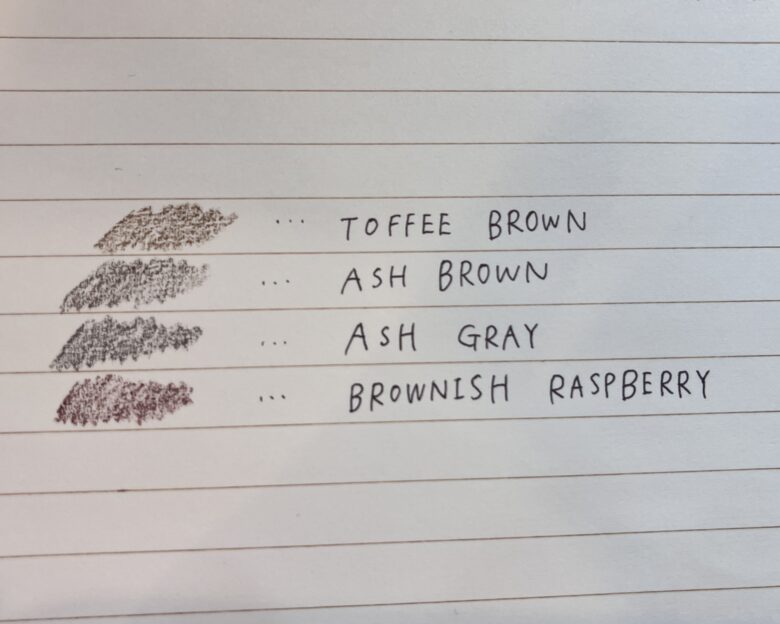 ... TOFFEE BROWN
... ASH BROWN
... ASH GRAY
... BROWNISH RASPBERRY